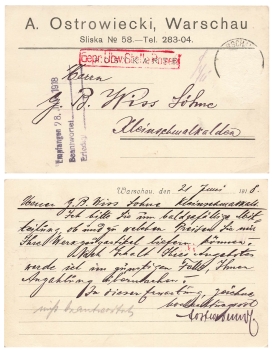 A. Ostrowiecki, Warschau
Sliska № 58.—Tel. 283-04.
Herrn
G. B. Wiss Söhne
Kleinschmalkalden
Empfangen 28. 1918
Beantwortet
Erledigt
Warschau, den 21 Juni 1918.
Herren G. B. Wiss Söhne Kleinschmalkalden
Ich bitte Sie um baldgefällige Mit-
teilung, ob und zu welchen Preisen Sie mir
Ihre liefern können.
Nach Erhalt Ihres Angebotes
werde ich im günstigen Falle, Ihnen
Anzahlung
In dieser Erwartung, zeichne
hochachtungsvoll
nicht beantwortet